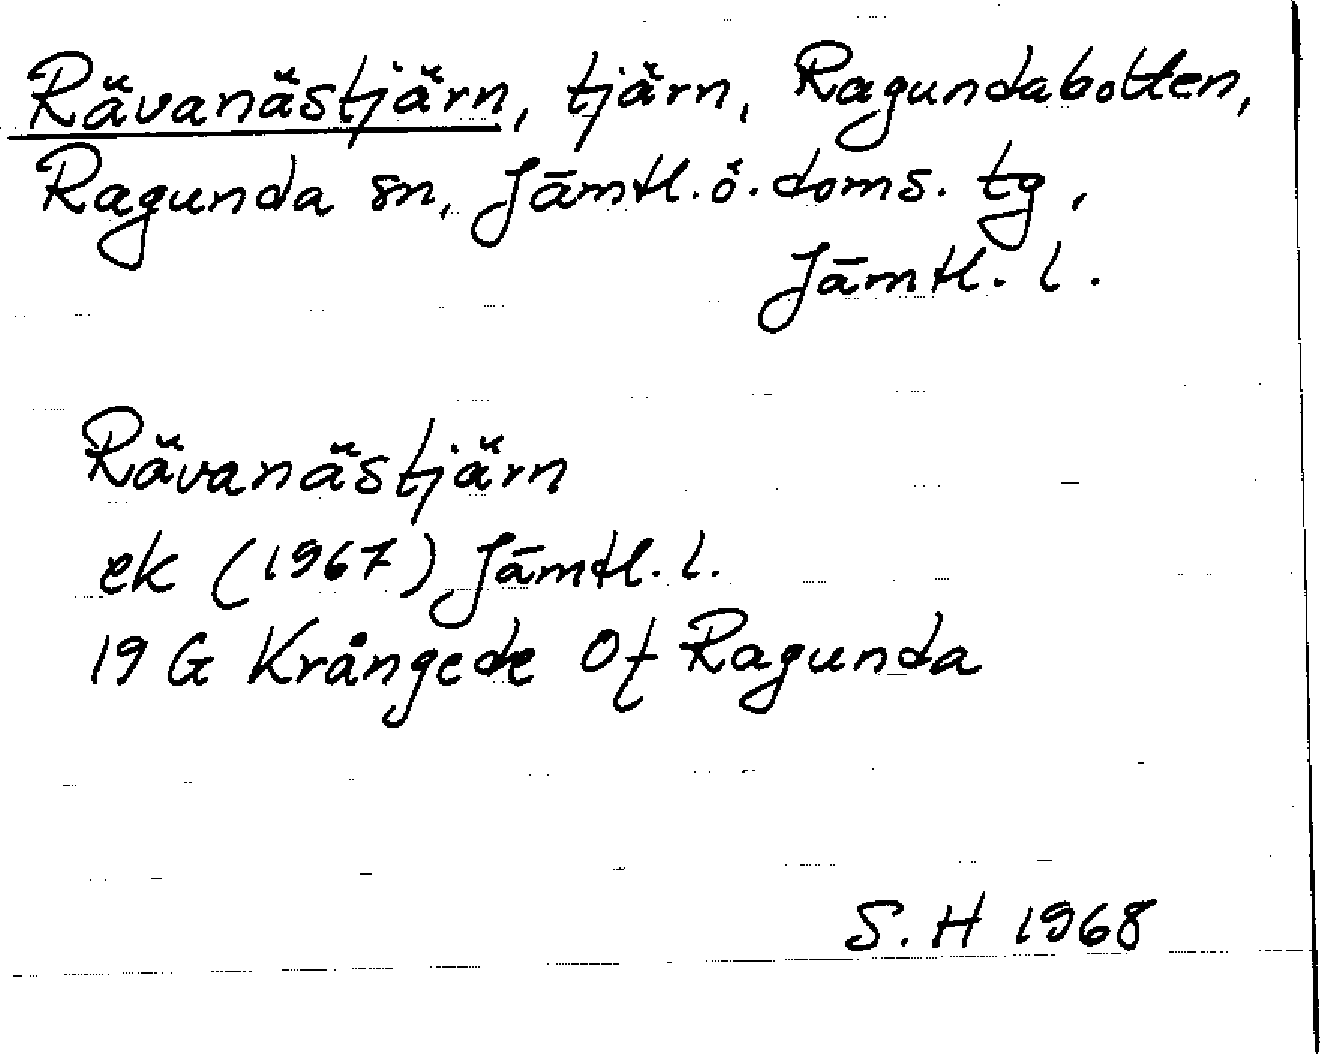 Rävanästjärn, tjärn, Ragundabotten,
Ragunda sn, Jämtl. ö. doms. tg,
Jämtl. l.
Rävanästjärn
ek (1967) Jämtl. l.
19 G Krångede Of Ragunda
S. H 1968